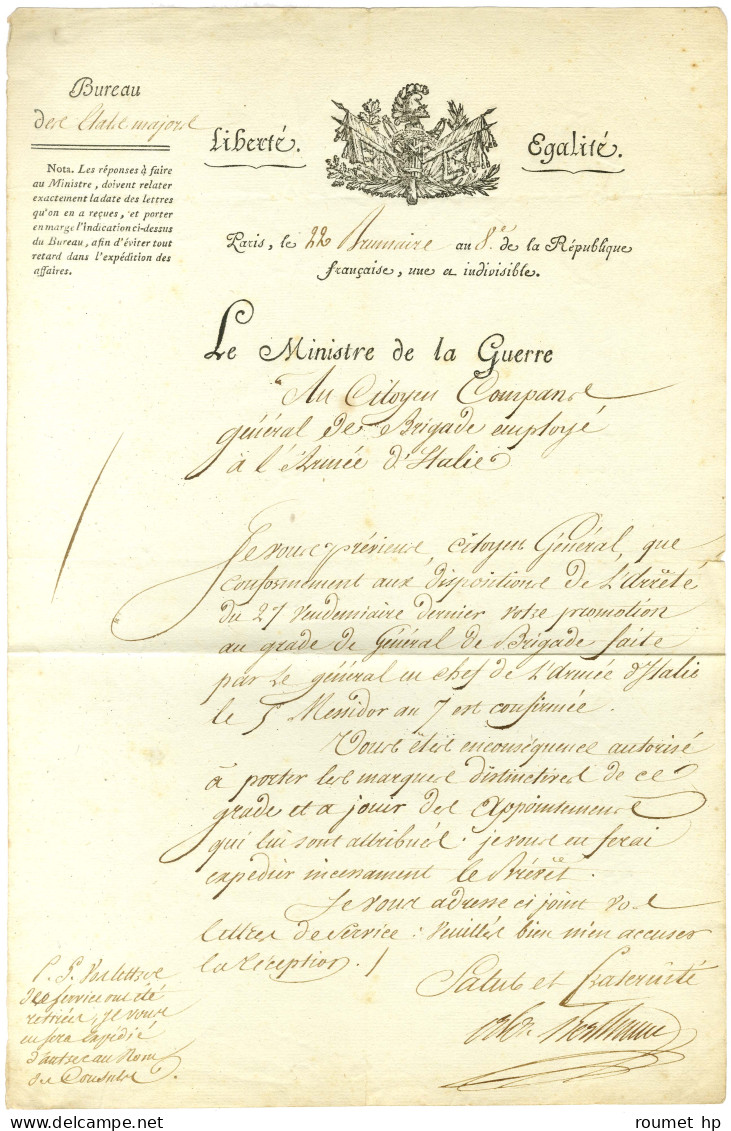 Bureau
des Etats majors
Nota. Les réponses à faire
au Ministre, doivent relater
exactement la date des lettres
qu'on en a reçues, et porter
en marge l'indication ci-dessus
du Bureau, afin d'éviter tout
retard dans l'expédition des
affaires.
Liberté. Egalité.
Paris, le 22 Brumaire au 8.e de la République
française, une et indivisible.
Le Ministre de la Guerre
Au Citoyen Compans
général de Brigade employé
à l'Armée d'Italie
Je vous préviens, Citoyen Général, que
conformément aux dispositions de L'Arrêté
du 27 Vendemiaire dernier votre promotion
au grade de Général de Brigade faite
par Le général en chef de L'Armée d'Italie
le 5 Messidor an 7 est confirmée.
Vous êtes enconséquence autorisé
à porter les marques distinctives de ce
grade et a jouir des Appointemens
qui lui sont attribués. je vous en ferai
expedier incessament le Brévet.
Je vous adresse ci joint vos
lettres de service : Veuillés bien m'en accuser
la réception. /
Salut et fraternité
P. S. Vos lettres
de service ont été
retirées, Je vous
en sera expédié
d'autres au Nom
des Consuls.
roumet hp